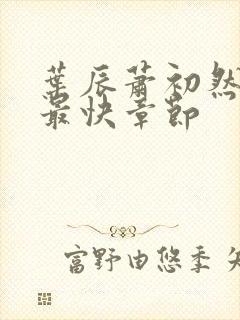 葉辰蕭初然
最快章節
富野由悠季